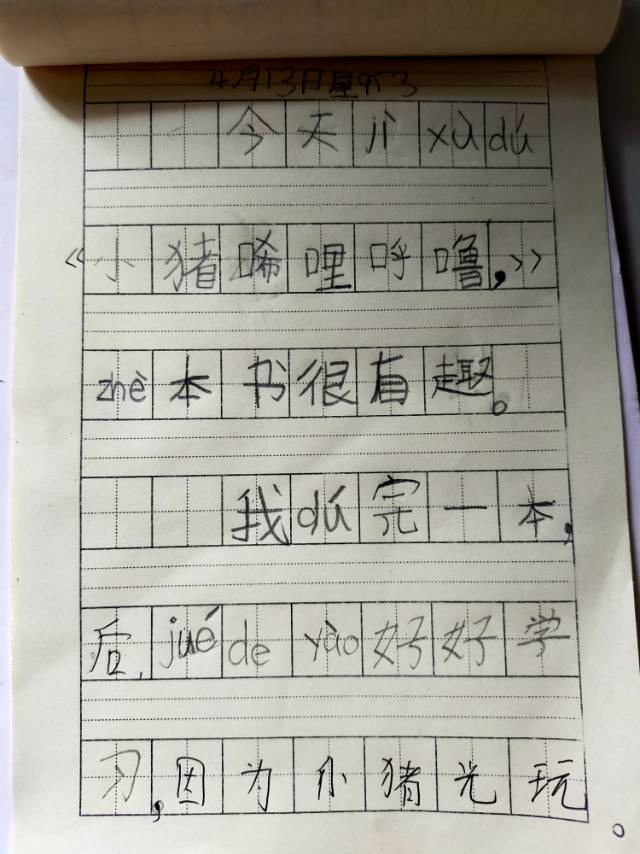 4月13日星期3
今天jì xù dú
《小猪唏哩呼噜,》
zhè本书很有趣。
我dú完一本,
后,jué de yào好好学
习,因为小猪光玩
。